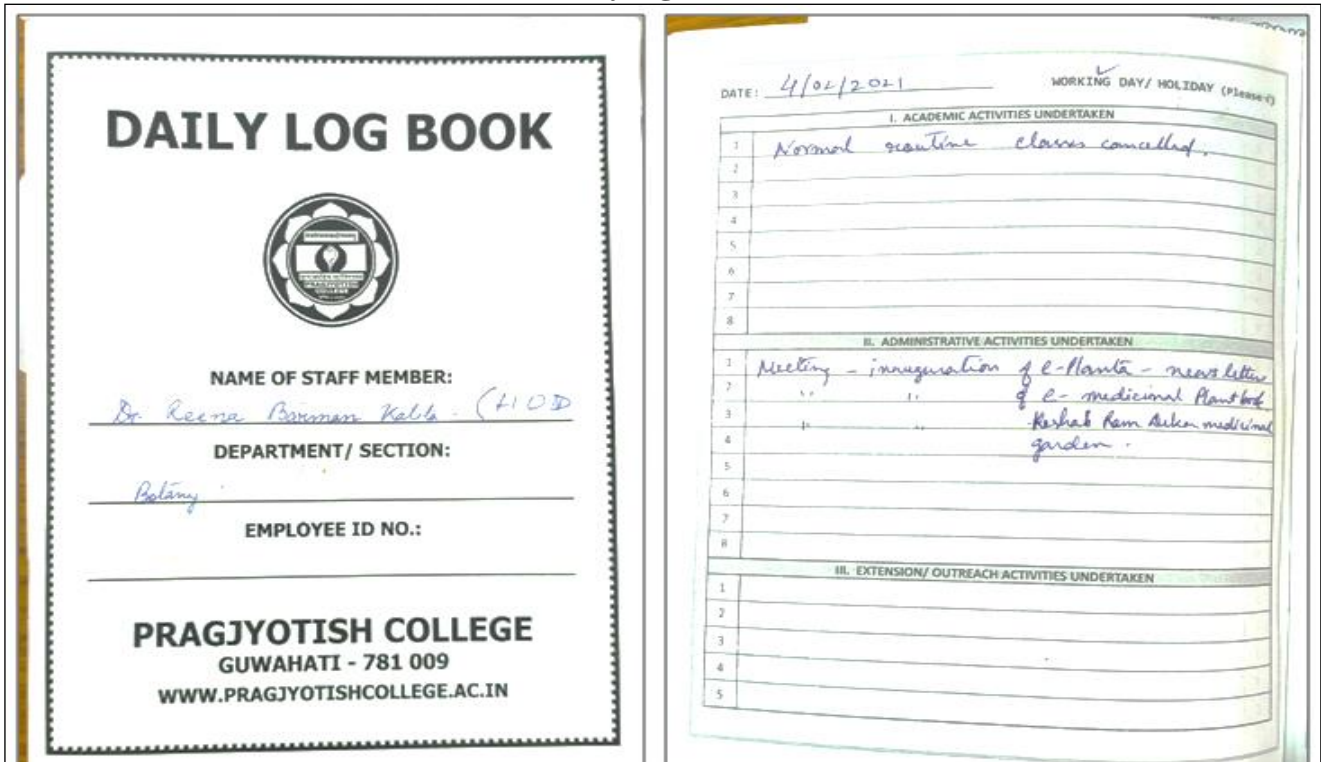 DAILY LOG BOOK
PRAGJYOTISH
COLLEGE
NAME OF STAFF MEMBER:
Dr. Reena Barman Kalla - (HOD
DEPARTMENT/ SECTION:
Botany
EMPLOYEE ID NO.:
PRAGJYOTISH COLLEGE
GUWAHATI - 781 009
WWW.PRAGJYOTISHCOLLEGE.AC.IN
DATE: 4/02/2021 WORKING DAY/ HOLIDAY (Please √)
I. ACADEMIC ACTIVITIES UNDERTAKEN
1 Normal routine classes cancelled.
2
3
4
5
6
7
8
II. ADMINISTRATIVE ACTIVITIES UNDERTAKEN
1 Meeting - inauguration of e-Planta - news letter
2 " " of e- medicinal Plant book
3 " " Keshab Ram medicinal
4 garden.
5
6
7
8
III. EXTENSION/ OUTREACH ACTIVITIES UNDERTAKEN
1
2
3
4
5